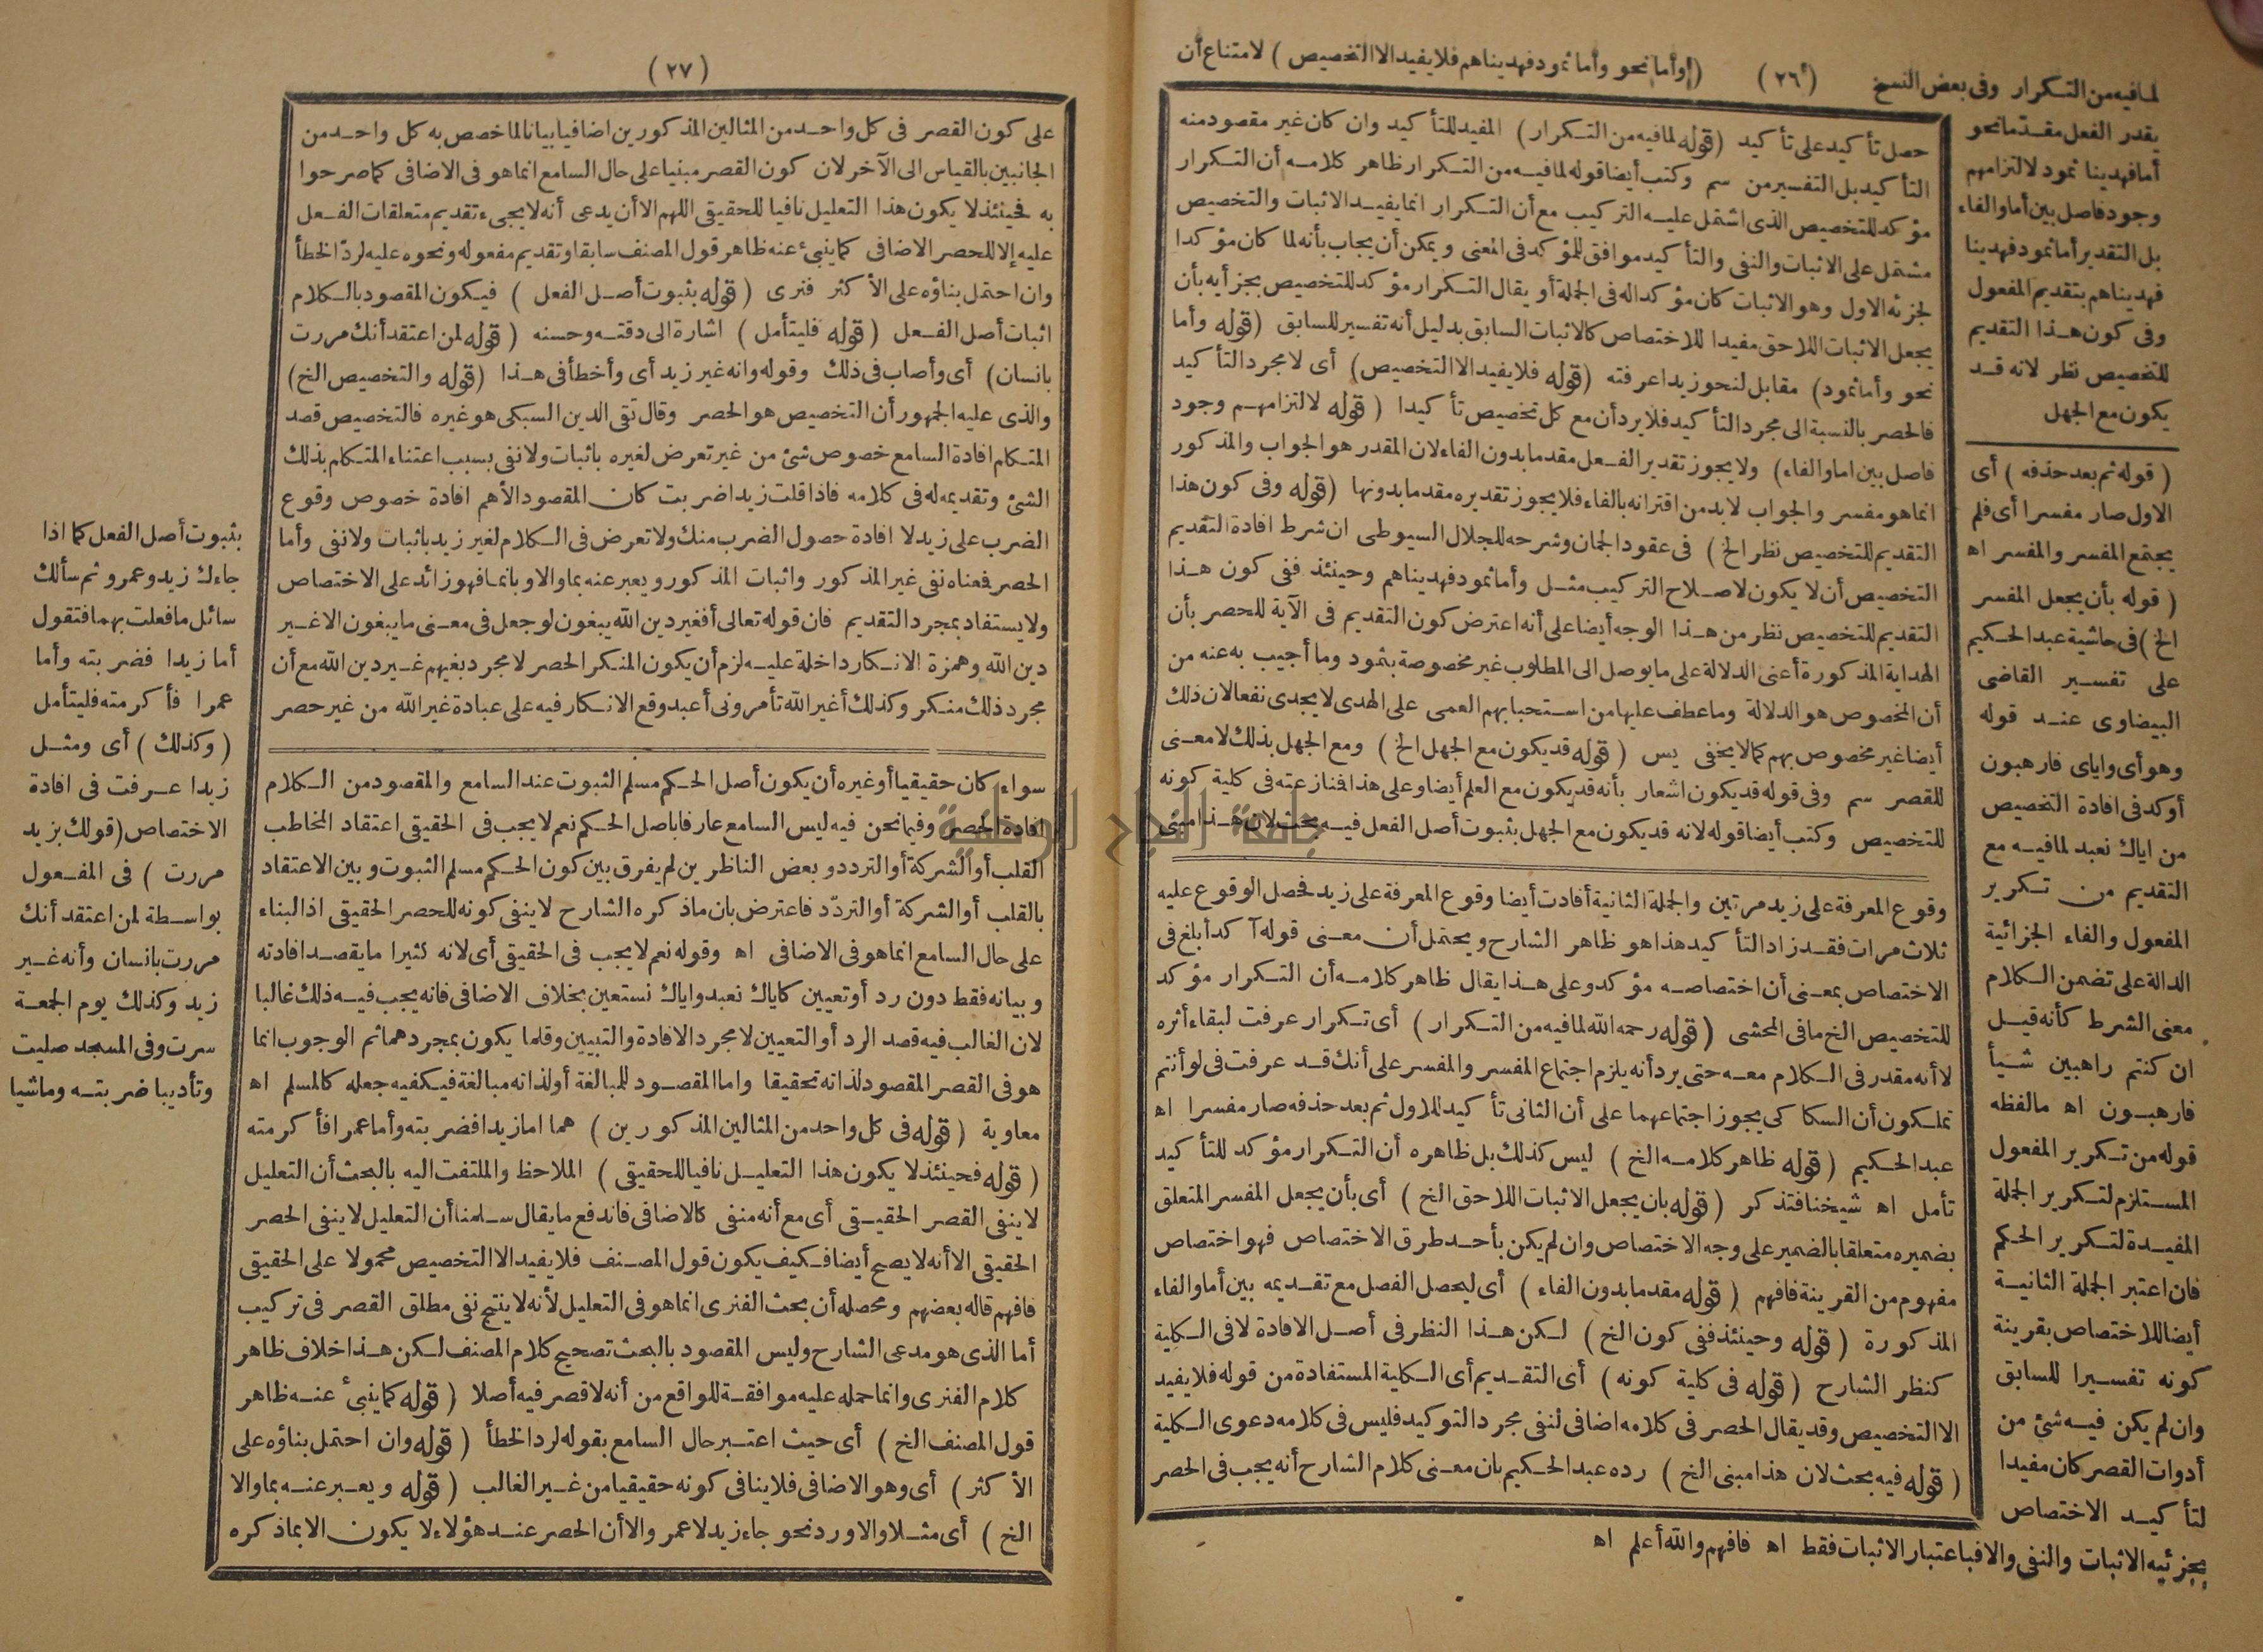 لمافيه من التكرار وفى بعض النسخ
(٢٦)
(وأما نحو وأما ثمود فهديناهم فلا يفيد الا التخصيص) لامتناع أن
يقدر الفعل مقدما نحو
أما فهدينا ثمود لالتزامهم
وجود فاصل بين أما والفاء
بل التقدير أما ثمود فهدينا
فهديناهم بتقديم المفعول
وفى كون هذا التقديم
للتخصيص نظر لانه قد
يكون مع الجهل
حصل تأكيد على تأكيد (قوله لمافيه من التكرار) المفيد للتأكيد وان كان غير مقصود منه
التأكيد بل التفسير من سم وكتب أيضا قوله لمافيه من التكرار ظاهر كلامه أن التكرار
مؤكد للتخصيص الذى اشتمل عليه التركيب مع أن التكرار انما يفيد الاثبات والتخصيص
مشتمل على الاثبات والنفى والتأكيد موافق للمؤكد فى المعنى ويمكن أن يجاب بأنه لما كان مؤكدا
لجزئه الاول وهو الاثبات كان مؤكدا له فى الجملة أو يقال التكرار مؤكد للتخصيص بجزأيه بأن
يجعل الاثبات اللاحق مفيدا للاختصاص كالاثبات السابق بدليل أنه تفسير للسابق (قوله وأما
نحو وأما ثمود) مقابل لنحو زيدا عرفته (قوله فلا يفيد الا التخصيص) أى لا مجرد التأكيد
فالحصر بالنسبة الى مجرد التأكيد فلا يرد أن مع كل تخصيص تأكيدا (قوله لالتزامهم وجود
فاصل بين اما والفاء) ولا يجوز تقدير الفعل مقدما بدون الفاء لان المقدر هو الجواب والمذكور
انما هو مفسر والجواب لا بد من اقترانه بالفاء فلا يجوز تقديره مقدما بدونها (قوله وفى كون هذا
التقديم للتخصيص نظر الخ) فى عقود الجمان وشرحه للجلال السيوطى ان شرط افادة التقديم
التخصيص أن لا يكون لاصلاح التركيب مثل وأما ثمود فهديناهم وحينئذ ففى كون هذا
التقديم للتخصيص نظر من هذا الوجه أيضا على أنه اعترض كون التقديم فى الآية للحصر بأن
الهداية المذكورة أعنى الدلالة على ما يوصل الى المطلوب غير مخصوصة بثمود وما أجيب به عنه من
أن المخصوص هو الدلالة وما عطف عليها من استحبابهم العمى على الهدى لا يجدى نفعا لان ذلك
أيضا غير مخصوص بهم كما لا يخفى يس (قوله قد يكون مع الجهل الخ) ومع الجهل بذلك لا معنى
للقصر سم وفى قوله قد يكون اشعار بأنه قد يكون مع العلم أيضا وعلى هذا فمنازعته فى كلية كونه
للتخصيص وكتب أيضا قوله لانه قد يكون مع الجهل بثبوت أصل الفعل فيه بحث لان هذا مبنى
وقوع المعرفة على زيد مرتين والجملة الثانية أفادت أيضا وقوع المعرفة على زيد فحصل الوقوع عليه
ثلاث مرات فقد زاد التأكيد هذا هو ظاهر الشارح ويحتمل أن معنى قوله آكد أبلغ فى
الاختصاص بمعنى أن اختصاصه مؤكد وعلى هذا يقال ظاهر كلامه أن التكرار مؤكد
للتخصيص الخ ما فى المحشى (قوله رحمه الله لمافيه من التكرار) أى تكرار عرفت لبقاء أثره
لا أنه مقدر فى الكلام معه حتى يرد أنه يلزم اجتماع المفسر والمفسر على أنك قد عرفت فى لو أنتم
تملكون أن السكاكى يجوز اجتماعهما على أن الثانى تأكيد للاول ثم بعد حذفه صار مفسرا اه
عبد الحكيم (قوله ظاهر كلامه الخ) ليس كذلك بل ظاهره أن التكرار مؤكد للتأكيد
تأمل اه شيخنا فتذكر (قوله بان يجعل الاثبات اللاحق الخ) أى بأن يجعل المفسر المتعلق
بضميره متعلقا بالضمير على وجه الاختصاص وان لم يكن بأحد طرق الاختصاص فهو اختصاص
مفهوم من القرينة فافهم (قوله مقدما بدون الفاء) أى ليحصل الفصل مع تقديمه بين أما والفاء
المذكورة (قوله وحينئذ ففى كون الخ) لكن هذا النظر فى أصل الافادة لا فى الكلية
كنظر الشارح (قوله فى كلية كونه) أى التقديم أى الكلية المستفادة من قوله فلا يفيد
الا التخصيص وقد يقال الحصر فى كلامه اضافى لنفى مجرد التوكيد فليس فى كلامه دعوى الكلية
(قوله فيه بحث لان هذا مبنى الخ) رده عبد الحكيم بان معنى كلام الشارح أنه يجب فى الحصر
(قوله ثم بعد حذفه) أى
الاول صار مفسرا أى فلم
يجتمع المفسر والمفسر اه
(قوله بأن يجعل المفسر
الخ) فى حاشية عبد الحكيم
على تفسير القاضى
البيضاوى عند قوله
وهو أى واياى فارهبون
أوكد فى افادة التخصيص
من اياك نعبد لمافيه مع
التقديم من تكرير
المفعول والفاء الجزائية
الدالة على تضمن الكلام
معنى الشرط كأنه قيل
ان كنتم راهبين شيأ
فارهبون اه ما لفظه
قوله من تكرير المفعول
المستلزم لتكرير الجملة
المفيدة لتكرير الحكم
فان اعتبر الجملة الثانية
أيضا للاختصاص بقرينة
كونه تفسيرا للسابق
وان لم يكن فيه شئ من
أدوات القصر كان مفيدا
لتأكيد الاختصاص
بجزئيه الاثبات والنفى والا فباعتبار الاثبات فقط اه فافهم والله أعلم اه
(٢٧)
على كون القصر فى كل واحد من المثالين المذكورين اضافيا بيانا لما خصص به كل واحد من
الجانبين بالقياس الى الآخر لان كون القصر مبنيا على حال السامع انما هو فى الاضافى كما صرحوا
به فحينئذ لا يكون هذا التعليل نافيا للحقيقى اللهم الا أن يدعى أنه لا يجىء تقديم متعلقات الفعل
عليه إلا للحصر الاضافى كما ينبئ عنه ظاهر قول المصنف سابقا وتقديم مفعوله ونحوه عليه لرد الخطأ
وان احتمل بناؤه على الأكثر فنرى (قوله بثبوت أصل الفعل) فيكون المقصود بالكلام
اثبات أصل الفعل (قوله فليتأمل) اشارة الى دقته وحسنه (قوله لمن اعتقد أنك مررت
بانسان) أى وأصاب فى ذلك وقوله وانه غير زيد أى وأخطأ فى هذا (قوله والتخصيص الخ)
والذى عليه الجمهور أن التخصيص هو الحصر وقال تقى الدين السبكى هو غيره فالتخصيص قصد
المتكلم افادة السامع خصوص شئ من غير تعرض لغيره باثبات ولا نفى بسبب اعتناء المتكلم بذلك
الشئ وتقديمه له فى كلامه فاذا قلت زيدا ضربت كان المقصود الأهم افادة خصوص وقوع
الضرب على زيد لا افادة حصول الضرب منك ولا تعرض فى الكلام لغير زيد باثبات ولا نفى وأما
الحصر فمعناه نفى غير المذكور واثبات المذكور ويعبر عنه بما والا وبانما فهو زائد على الاختصاص
ولا يستفاد بمجرد التقديم فان قوله تعالى أفغير دين الله يبغون لو جعل فى معنى ما يبغون الا غير
دين الله وهمزة الانكار داخلة عليه لزم أن يكون المنكر الحصر لا مجرد بغيهم غير دين الله مع أن
مجرد ذلك منكر وكذلك أغير الله تأمرونى أعبد وقع الانكار فيه على عبادة غير الله من غير حصر
سواء كان حقيقيا أو غيره أن يكون أصل الحكم مسلم الثبوت عند السامع والمقصود من الكلام
افادة الحصر وفيما نحن فيه ليس السامع عارفا باصل الحكم نعم لا يجب فى الحقيقى اعتقاد المخاطب
القلب أو الشركة أو التردد وبعض الناظرين لم يفرق بين كون الحكم مسلم الثبوت وبين الاعتقاد
بالقلب أو الشركة أو التردد فاعترض بان ما ذكره الشارح لا ينفى كونه للحصر الحقيقى اذ البناء
على حال السامع انما هو فى الاضافى اه وقوله نعم لا يجب فى الحقيقى أى لانه كثيرا ما يقصد افادته
وبيانه فقط دون رد أو تعيين كاياك نعبد واياك نستعين بخلاف الاضافى فانه يجب فيه ذلك غالبا
لان الغالب فيه قصد الرد أو التعيين لا مجرد الافادة والتبيين وقلما يكون بمجردهما ثم الوجوب انما
هو فى القصر المقصود لذاته تحقيقا واما المقصود للمبالغة أو لذاته مبالغة فيكفيه جعله كالمسلم اه
معاوية (قوله فى كل واحد من المثالين المذكورين) هما اما زيدا فضربته وأما عمرا فأكرمته
(قوله فحينئذ لا يكون هذا التعليل نافيا للحقيقى) الملاحظ والملتفت اليه بالبحث أن التعليل
لا ينفى القصر الحقيقى أى مع أنه منفى كالاضافى فاندفع ما يقال سلمنا أن التعليل لا ينفى الحصر
الحقيقى الا أنه لا يصح أيضا فكيف يكون قول المصنف فلا يفيد الا التخصيص محمولا على الحقيقى
فافهم قاله بعضهم ومحصله أن بحث الفنرى انما هو فى التعليل لأنه لا ينتج نفى مطلق القصر فى تركيب
أما الذى هو مدعى الشارح وليس المقصود بالبحث تصحيح كلام المصنف لكن هذا خلاف ظاهر
كلام الفنرى وانما حمله عليه موافقة للواقع من أنه لا قصر فيه أصلا (قوله كما ينبئ عنه ظاهر
قول المصنف الخ) أى حيث اعتبر حال السامع بقوله لرد الخطأ (قوله وان احتمل بناؤه على
الأكثر) أى وهو الاضافى فلا ينافى كونه حقيقيا من غير الغالب (قوله ويعبر عنه بما والا
الخ) أى مثلا والا ورد نحو جاء زيد لا عمر والا أن الحصر عند هؤلاء لا يكون الا بما ذكره
بثبوت أصل الفعل كما اذا
جاءك زيد وعمرو ثم سألك
سائل ما فعلت بهما فتقول
أما زيدا فضربته وأما
عمرا فأكرمته فليتأمل
(وكذلك) أى ومثل
زيدا عرفت فى افادة
الاختصاص (قولك بزيد
مررت) فى المفعول
بواسطة لمن اعتقد أنك
مررت بانسان وأنه غير
زيد وكذلك يوم الجمعة
سرت وفى المسجد صليت
وتأديبا ضربته وماشيا
جامعة النجاح الوطنية